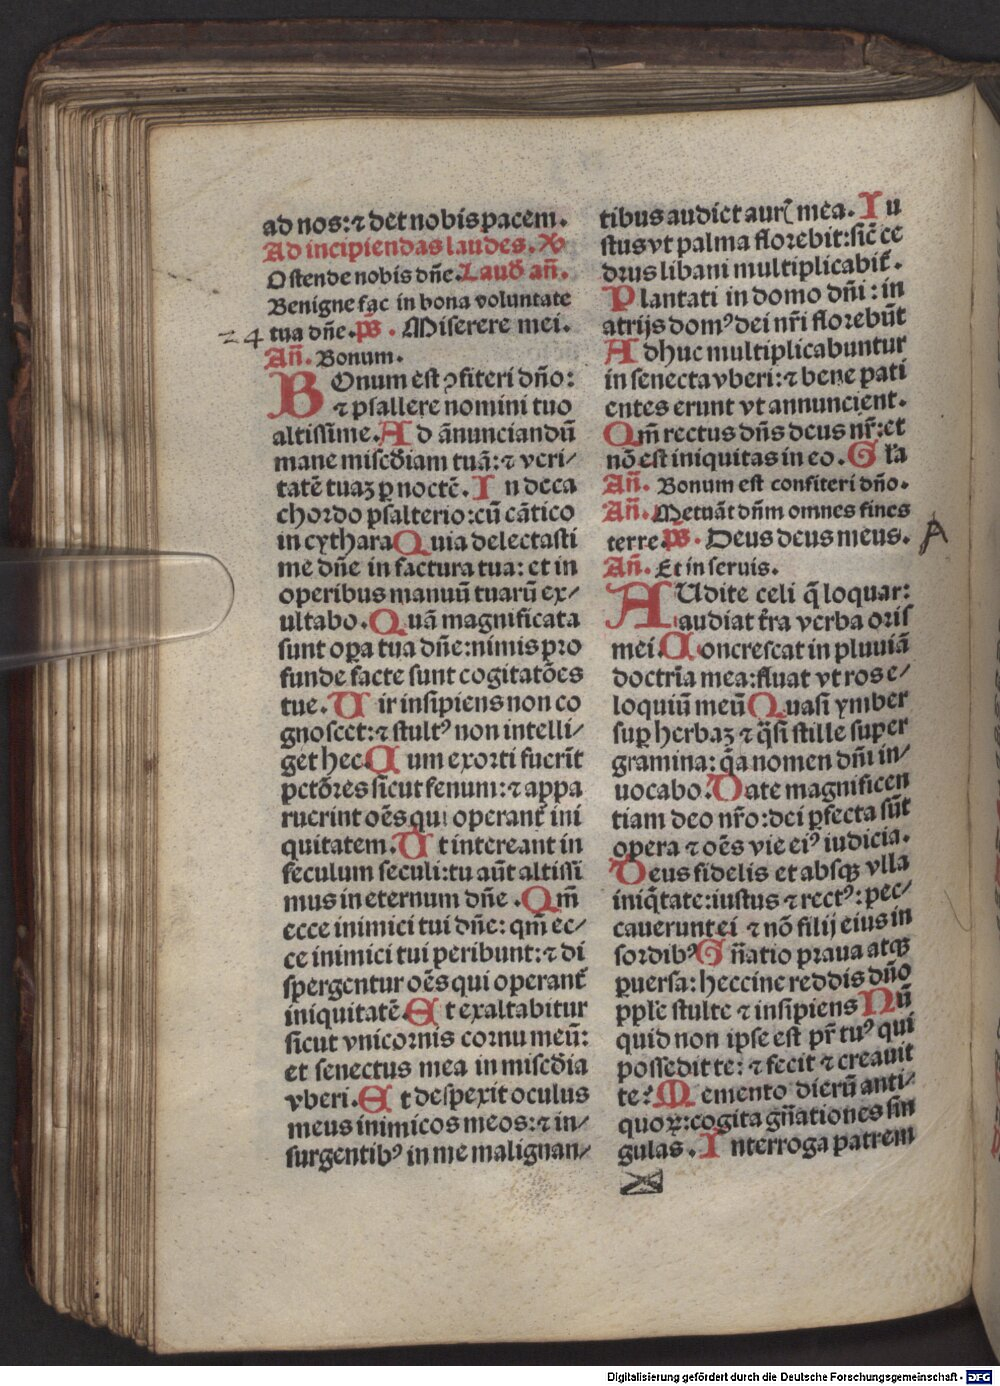 ad nos:⁊ det nobis pacem.
Ad incipiendas laudes. ℣
Ostende nobis dn̄e. Laud̄ an̄.
Benigne fac in bona voluntate
24 tua dn̄e. ps̄. Miserere mei.
An̄. Bonum.
BOnum est ꝯfiteri dn̄o:
⁊ psallere nomini tuo
altissime. Ad ānunciandū
mane misc̄diam tuā:⁊ veri/
tatē tuaꝫ ꝑ noctē. In deca
chordo psalterio:cū cātico
in cythara Quia delectasti
me dn̄e in factura tua: et in
operibus manuū tuarū ex/
ultabo. Quā magnificata
sunt oꝑa tua dn̄e:nimis pro
funde facte sunt cogitatōes
tue. Uir insipiens non co
gnoscet:⁊ stultꝰ non intelli/
get hec. Cum exorti fuerīt
pctōres sicut fenum:⁊ appa
ruerint oēs qui operant̄ ini
quitatem. Ut intereant in
seculum seculi:tu aūt altissi
mus in eternum dn̄e. Qm̄
ecce inimici tui dn̄e: qm̄ ec/
ce inimici tui peribunt:⁊ di
spergentur oēs qui operant̄
iniquitatē. Et exaltabitur
sicut vnicornis cornu meū:
et senectus mea in misc̄dia
vberi. Et despexit oculus
meus inimicos meos:⁊ in/
surgentibꝰ in me malignan/
tibus audiet aur̄ mea. Iu
stus vt palma florebit:sic̄ ce
drus libani multiplicabit̄.
Plantati in domo dn̄i: in
atrijs domꝰ dei nr̄i florebūt
Adhuc multiplicabuntur
in senecta vberi:⁊ bene pati
entes erunt vt annuncient.
Qm̄ rectus dn̄s deus nr̄:et
nō est iniquitas in eo. Gl̄a
An̄. Bonum est confiteri dn̄o.
An̄. Metuāt dn̄m omnes fines
terre. ps̄. Deus deus meus. A
An̄. Et in seruis.
AUdite celi q̄ loquar:
audiat t̄ra verba oris
mei. Concrescat in pluuiā
doctrīa mea:fluat vt ros e/
loquiū meū Quasi ymber
suꝑ herbaꝫ ⁊ q̄si stille super
gramina: q̄a nomen dn̄i in/
uocabo. Date magnificen
tiam deo nr̄o:dei ꝑfecta sūt
opera ⁊ oēs vie eiꝰ iudicia.
Deus fidelis et absqꝫ vlla
iniq̄tate:iustus ⁊ rectꝰ: pec/
cauerunt ei ⁊ nō filij eius in
sordibꝰ Gn̄atio praua atqꝫ
ꝑuersa: heccine reddis dn̄o
pople̅ stulte ⁊ insipiens Nū
quid non ipse est pr̄ tuꝰ qui
possedit te: ⁊ fecit ⁊ creauit
te? Memento dierū anti/
quoꝝ:cogita gn̄ationes sin
gulas. Interroga patrem
Digitalisierung gefördert durch die Deutsche Forschungsgemeinschaft - DFG